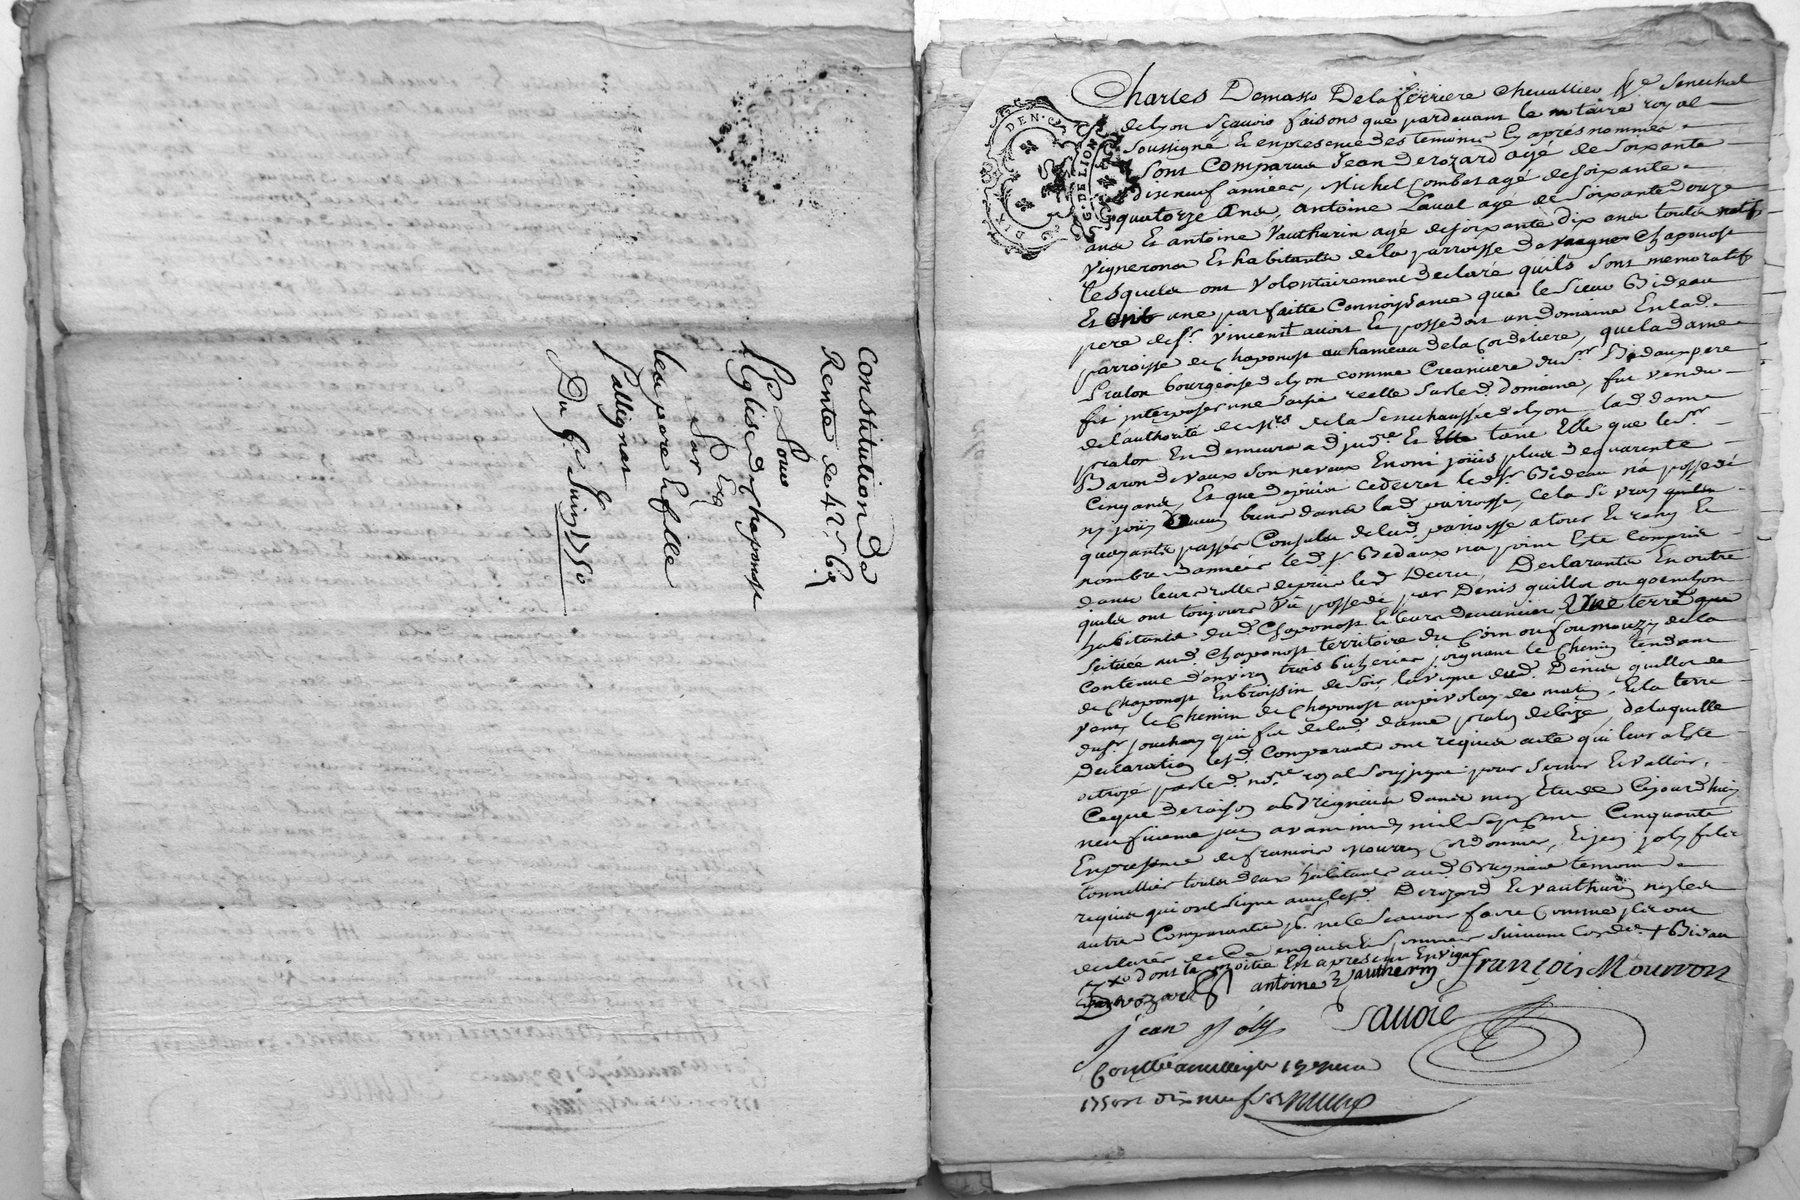 Constitution de
Rente de 42# 6s 9d
Pour
l'Eglise de Chaponost
Sur
les pere et fille
Palleignat
Du 6e Juin 1750
DEN. G. DE LION
Charles Demasso Delaferriere Chevallier Senechal
de lyon scavoir faisons que pardevant le notaire royal
soussigné et en presence des temoins cy apres nommés
sont comparus Jean Derozard agé de soixante
dixneuf années, Michel Combet agé de soixante
quatorze ans, antoine Laval agé de soixante douze
ans et antoine Vautherin agé de soixante dix ans touts
vignerons et habitants de la parroisse de Chaponost
lesquels ont volontairement declaré quils sont memoratifs
et ont une parfaitte connoissance que le sieur Bideau
pere de Sr. Vincent avoit et possedoit un domaine en lad.
parroisse de Chaponost au hameau de la Cordeliere, que la dame
pralon bourgeoise de lyon comme creanciere du Sr Bidaux pere
fit interposer une saisie reelle sur led. domaine, fut vendu
de l'authorité de la senechaussée de lyon lad. dame
pralon en demeura adjudre et tant elle que le Sr.
Baron de vaux son neveux en ont joüis plus de quarente
cinq ans, et que depuis ce decret led. Sr Bideau n'a possedé
ny joüy aucun biens dans lad. parroisse, cela si vray
quayants passés Consuls de lad. parroisse a tour et rang et
nombre d'années led. Sr Bidaux na point été compris
dans leurs rolles depuis led. decret, Declarants en outre
quils ont toujours vû possedé par Denis quillot ou
habitants dud. Chaponost et leurs devanciers une terre
située aud. Chaponost territoire du
contenue d'environ trois bicherées joignant le chemin tendant
de Chaponost en broissin de soir, la vigne dud. Denis quillot de
vent, le chemin de Chaponost au pivolay de matin, et la terre
du Sr jouchan qui fut de lad. dame pralon de bize, de laquelle
declaration lesd. comparants ont requis acte qui leur a eté
octroyé par led. nore royal soussigné pour servir et valloir
ceque de raison a Brignais dans mon etude cejourdhuy
neufvieme juin avant midy mil sept cent cinquante
en presence de francois mourron cordonnier, et jean joly
tonnellier touts deux habitants aud. Brignais temoins
requis qui ont signé avec lesd. Derozard et vautherin non les
autres comparants pr. ne le scavoir faire comme ils ont
declarés de ce enquis et sommés suivant lordce. + Bideau
dont la moitié est a present en vigne
Derozard antoine Vautherin François Mourron
jean joly Savoie
Controllé a millery le 19 juin
1750 Rt dix neuf sols